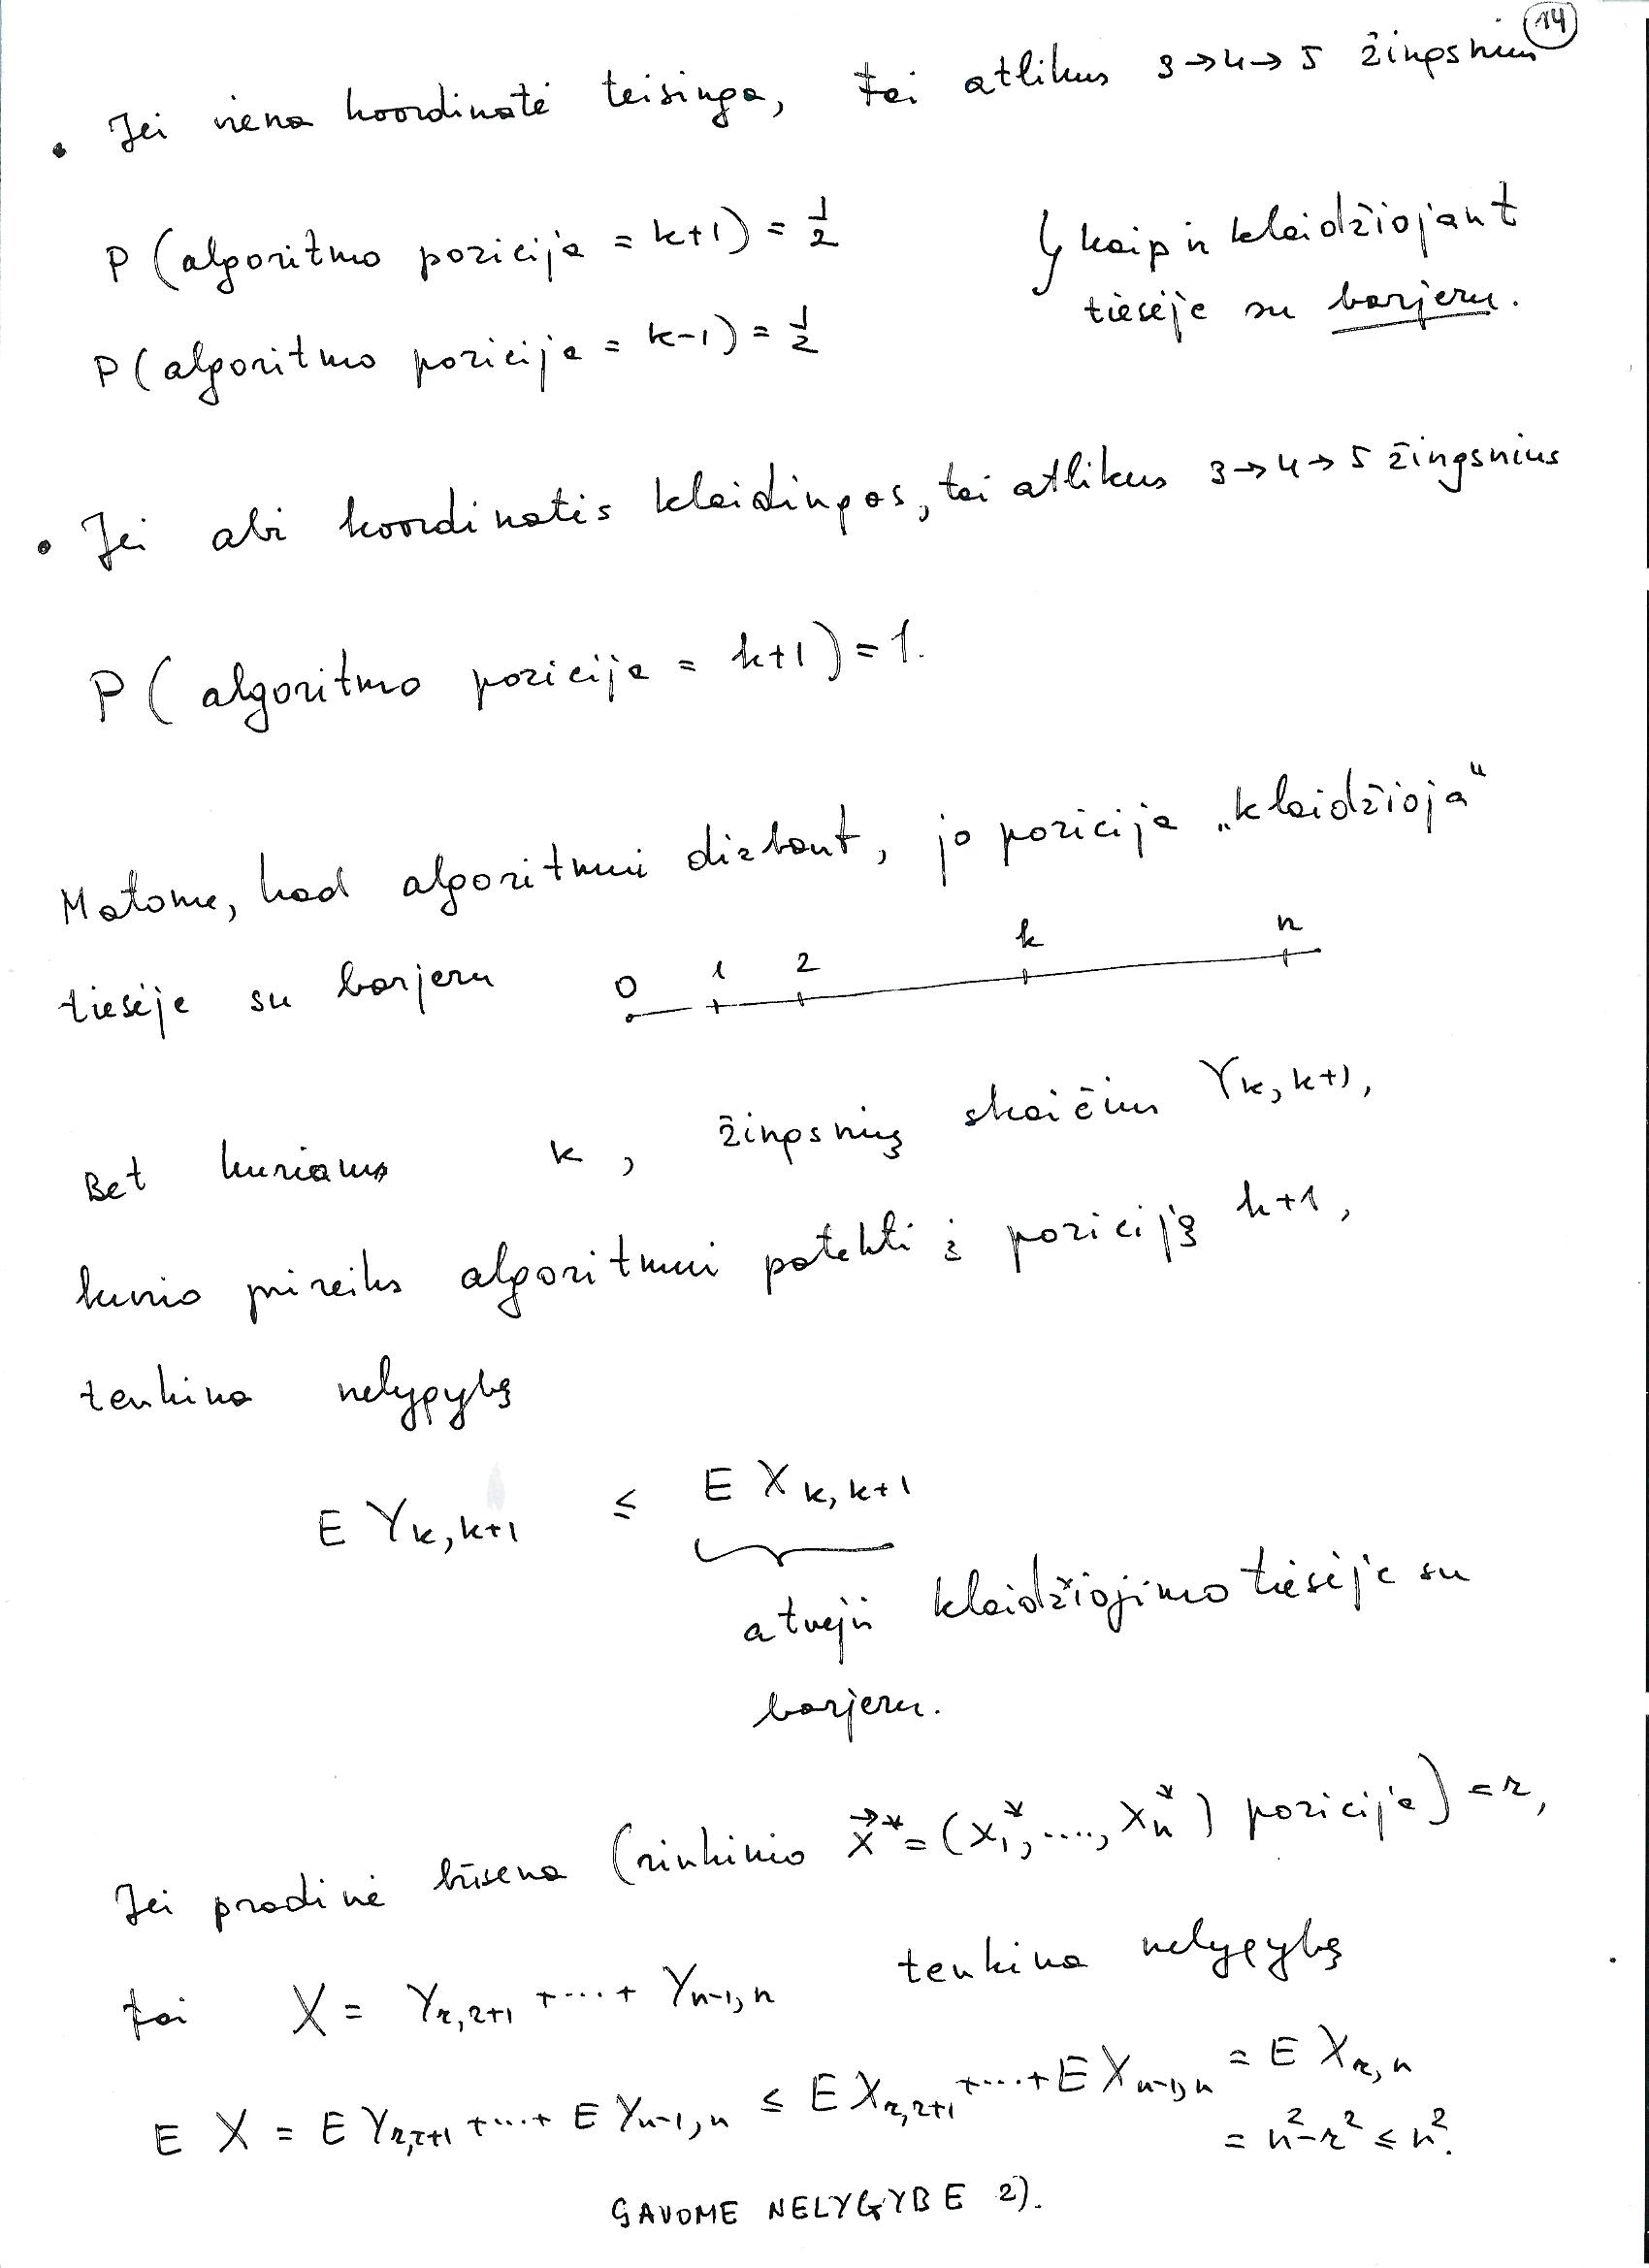 14
• Jei viena koordinatė teisinga, tai atlikus 3→4→5 žingsnius
P (algoritmo pozicija = k+1) = 1/2
P (algoritmo pozicija = k-1) = 1/2
} kaip ir klaidžiojant
tiesėje su barjeru.
• Jei abi koordinatės klaidingos, tai atlikus 3→4→5 žingsnius
P ( algoritmo pozicija = k+1 ) = 1.
Matome, kad algoritmui dirbant, jo pozicija „klaidžioja“
tiesėje su barjeru 0 1 2 k n
Bet kuriam k, žingsnių skaičius Y_{k,k+1},
kurio prireiks algoritmui patekti į poziciją k+1,
tenkina nelygybę
E Y_{k,k+1} ≤ E X_{k,k+1}
atveju klaidžiojimo tiesėje su
barjeru.
Jei pradinė būsena (rinkinio x⃗* = (x₁*, ...., xₙ*) pozicija) = r,
tai X = Y_{r,r+1} + ··· + Y_{n-1,n} tenkina nelygybę
E X = E Y_{r,r+1} + ··· + E Y_{n-1,n} ≤ E X_{r,r+1} + ··· + E X_{n-1,n} = E X_{r,n}
= n² - r² ≤ n².
GAVOME NELYGYBE 2).